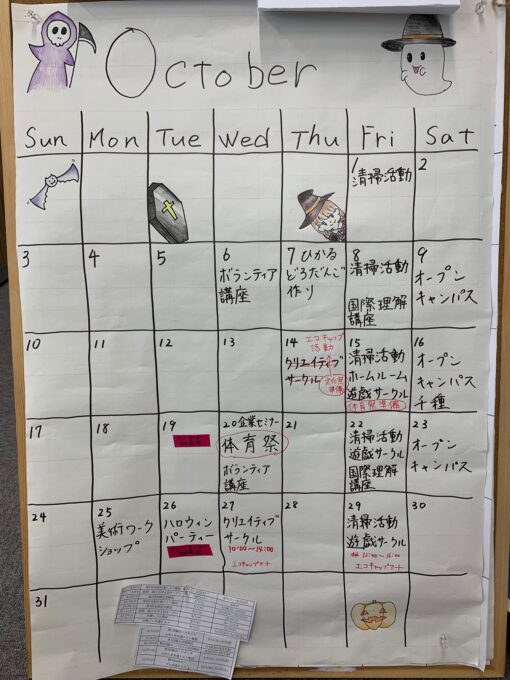 October
Sun Mon Tue Wed Thu Fri Sat
1 2
清掃活動
3 4 5 6 7 8 9
ボランティア
講座
ひかる
どろだんご
作り
清掃活動
国際理解
講座
オープン
キャンパス
10 11 12 13 14 15 16
エコキャップ
活動
クリエイティブ
サークル
清掃活動
ホームルーム
遊戯サークル
体育祭準備
オープン
キャンパス
千種
17 18 19 20 21 22 23
企業セミナー
体育祭
ボランティア
講座
清掃活動
遊戯サークル
国際理解
講座
オープン
キャンパス
24 25 26 27 28 29 30
美術ワーク
ショップ
ハロウィン
パーティー
クリエイティブ
サークル
10:00～14:00
エコキャップアート
清掃活動
遊戯サークル
エコキャップアート
31